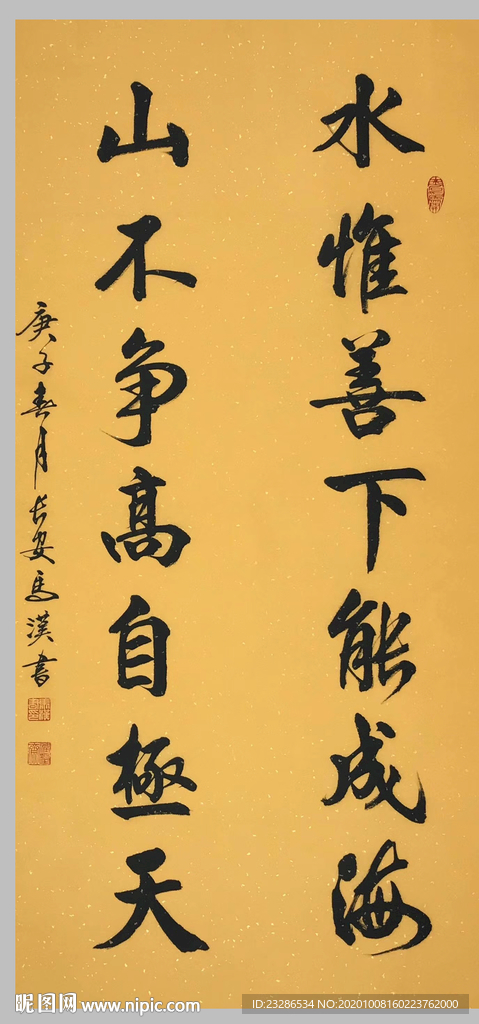 水惟善下能成海
山不争高自極天
庚子春月长安馬漢書
昵图网 www.nipic.com
ID:23286534 NO:20201008160223762000